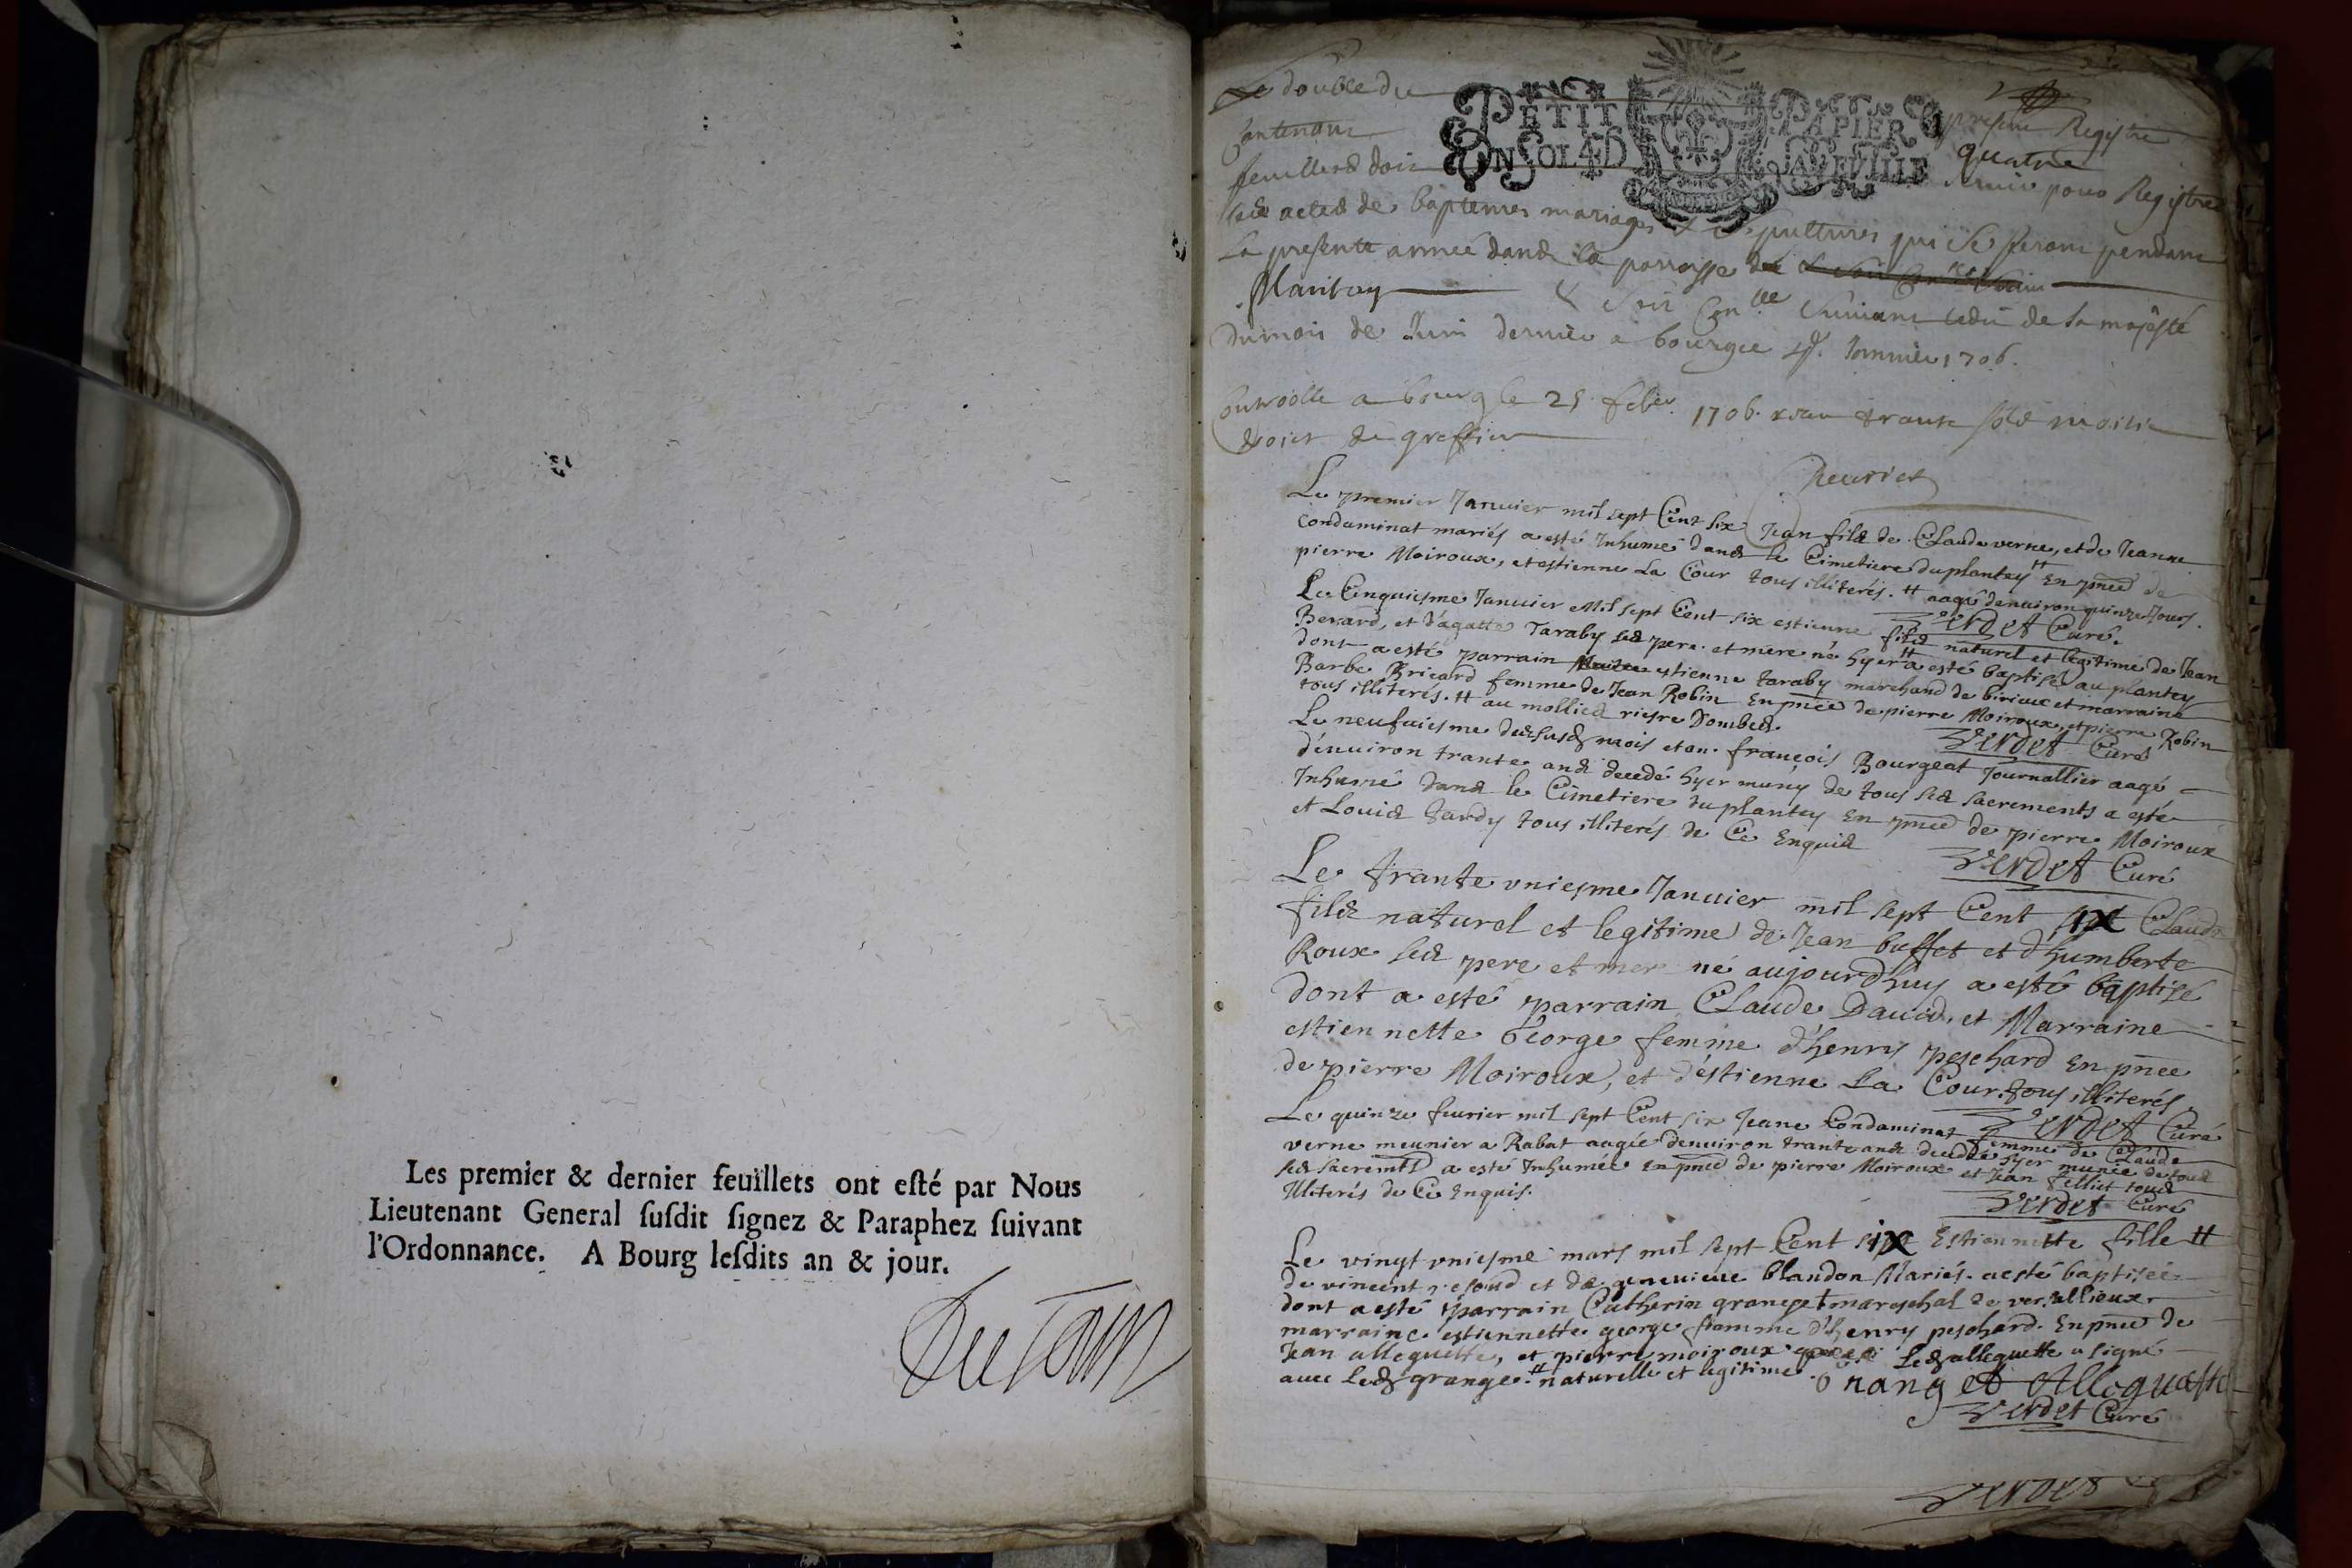 Les premier & dernier feuillets ont eſté par Nous
Lieutenant General ſuſdit ſignez & Paraphez ſuivant
l'Ordonnance. A Bourg leſdits an & jour.
double du present Registre
PETIT PAPIER
Contenant quatre
EN SOL 4 D
feuillets doit servir pour Registre
les actes de baptemes mariages & sepultures qui se feront pendant
La presente année dans la parroisse de
Plantay & soit suivant ledit de sa majesté
du mois de Juin dernier a bourg ce Janvier 1706.
Controlle a bourg le 25 1706. trante sols moitie
droict de greffier
Le premier Januier mil sept Cent six Jean fils de Claude verne, et de Jeanne
Condaminat mariés a esté Inhumé dans le Cimetiere du plantey tt En pnce de
pierre Moiroux, et estienne La Cour tous illiterés. tt aagé denuiron quinze Jours.
Verdet Curé.
Le Cinquiesme Januier Mil sept Cent six estienne fils naturel et legitime de Jean
Berard, et d'agatte Taraby ses pere et mere né hyer tt a esté baptisé au plantey
dont a esté parrain estienne taraby marchand de birieux et marraine
Barbe Bricard femme de Jean Robin En pnce de pierre Moiroux, et pierre Robin
tous illiterés. tt au mollied riere Dombes.
Verdet Curé
Le neufuiesme des susds mois et an. françois Bourgeat Journallier aagé
d'enuiron trante ans decedé hyer muny de tous ses sacrements a esté
Inhumé dans le Cimetiere du plantey En pnce de pierre Moiroux
et Louis tardy tous illiterés de Ce Enquis
Verdet Curé
Le trante vniesme Januier mil sept Cent six Claude
fils naturel et legitime de Jean buffet et d'humberte
Roux ses pere et mere né aujourd'huy a esté baptisé
dont a esté parrain Claude Dauid, et Marraine
estiennette George femme d'henry peschard En pnce
de pierre Moiroux, et d'estienne La Cour tous illiterés
Verdet Curé
Le quinze feurier mil sept Cent six Jeane Condaminat femme de Claude
verne meunier a Rabat aagée denuiron trante ans decedée hyer munie de tous
ses sacremts a esté Inhumée En pnce de pierre Moiroux et Jean felliet tous
Illiterés de Ce Enquis.
Verdet Curé
Le vingt vniesme mars mil sept Cent six Estiennette fille tt
de vincent et de geneuieue blandon Mariés. a esté baptisée
dont a esté parrain Catherin granget mareschal de versallieux
marraine estiennette george femme d'henry peschard. En pnce de
Jean alleguette, et pierre moiroux Leds alleguette a signé
auec Leds granget. tt naturelle et legitime.
Granget Alleguette
Verdet Curé
Verdet